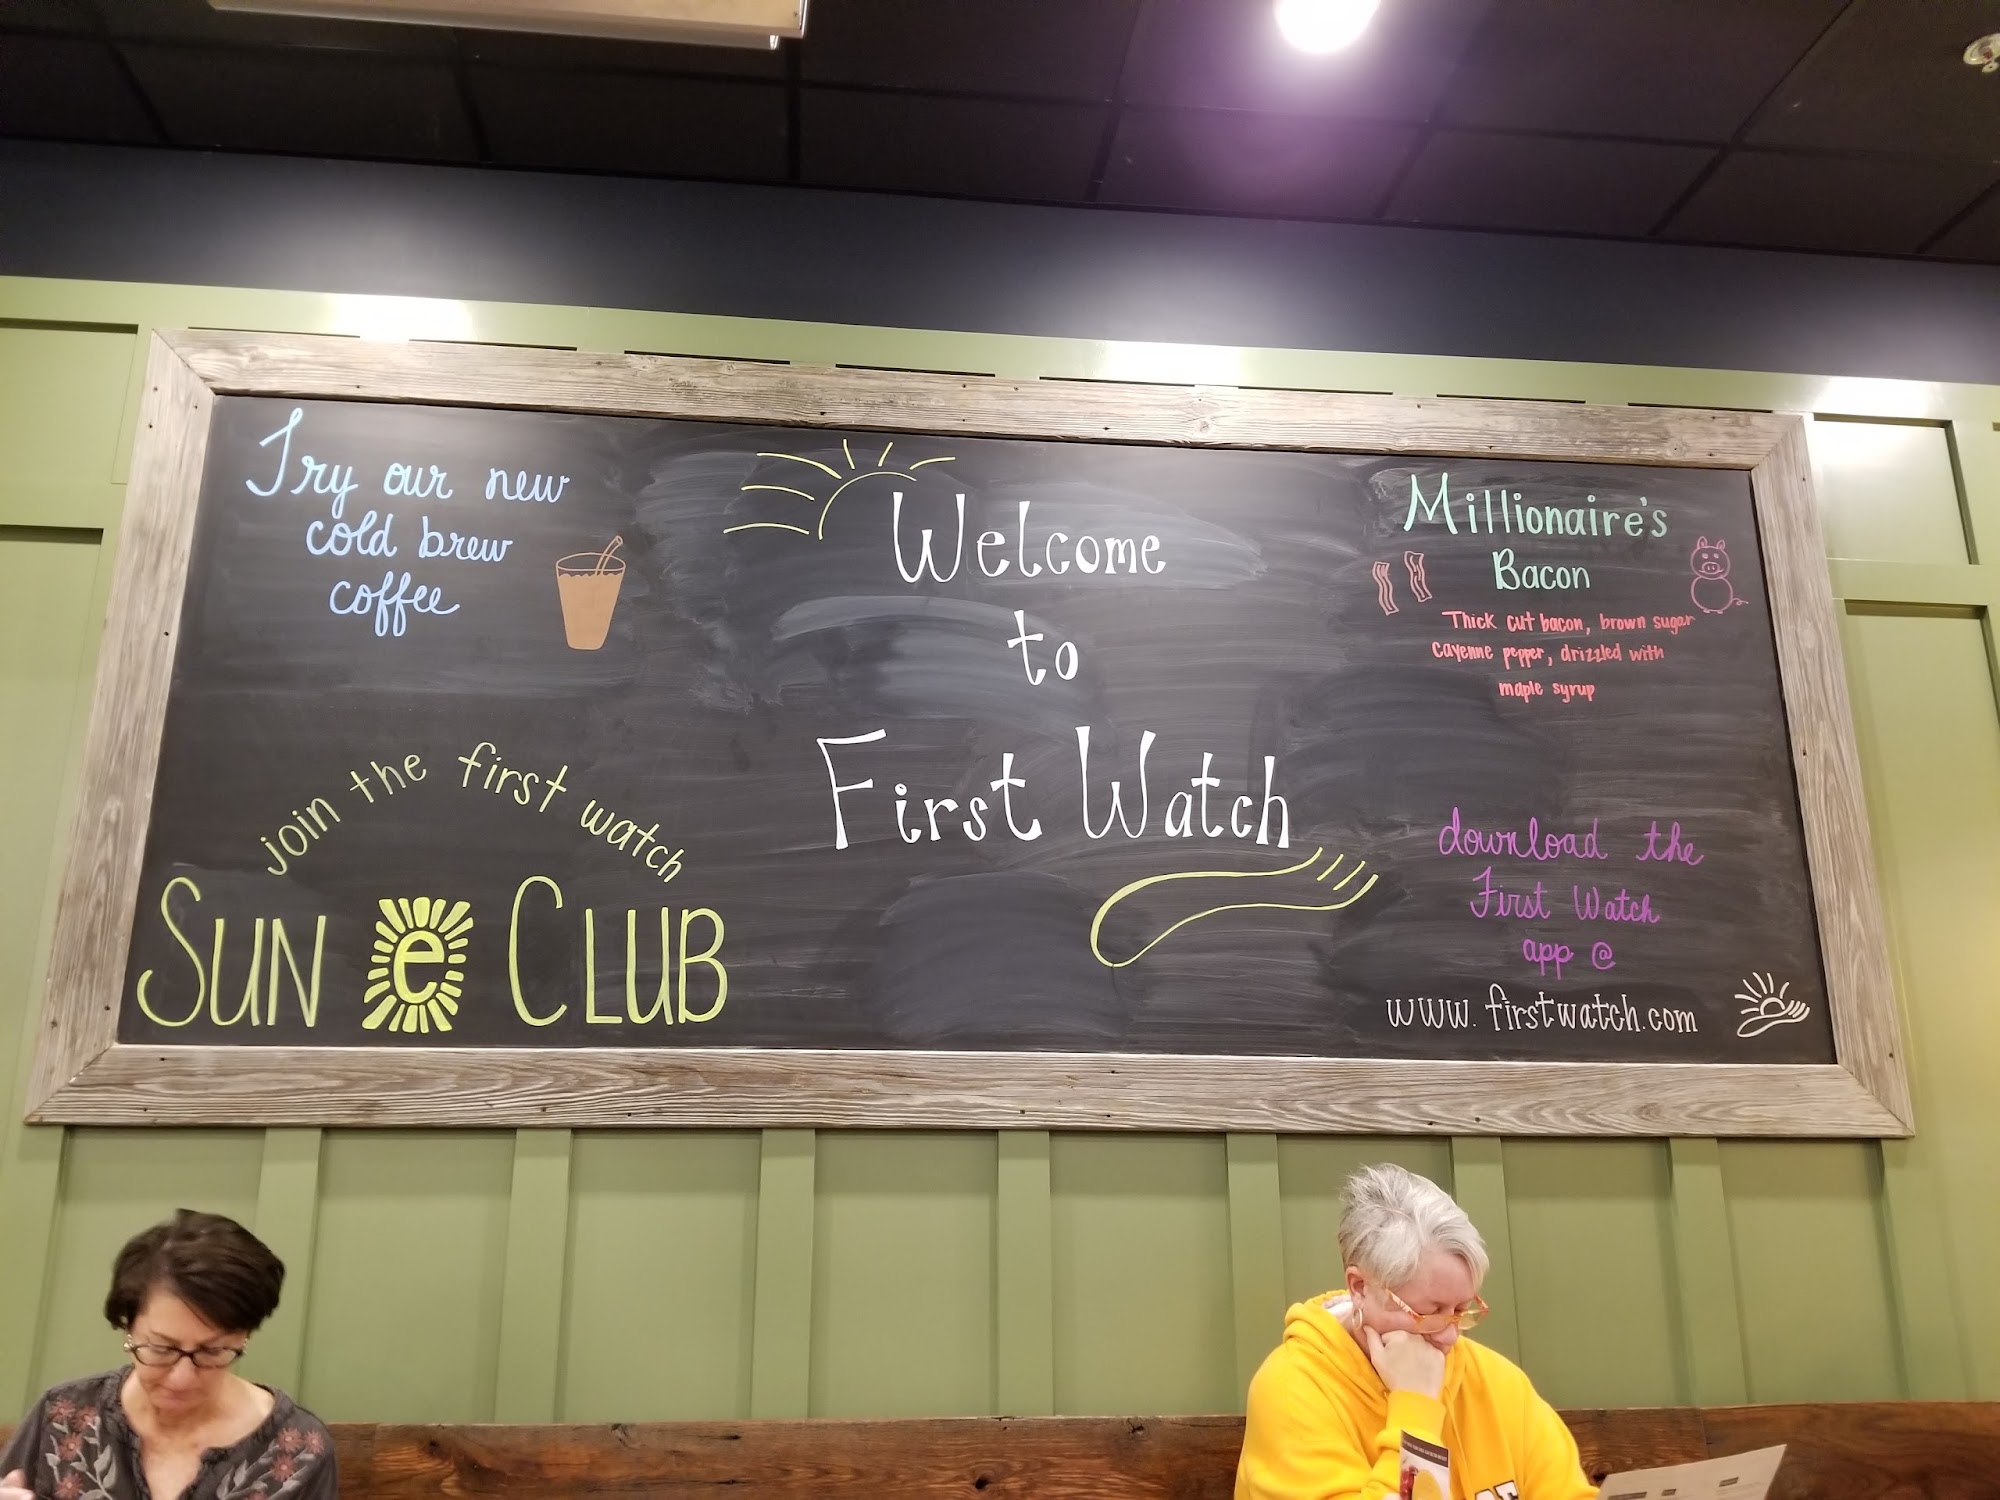 Try our new
cold brew
coffee
Welcome
to
First Watch
Millionaire's
Bacon
Thick cut bacon, brown sugar
cayenne pepper, drizzled with
maple syrup
join the first watch
SUN e CLUB
download the
First Watch
app @
www.firstwatch.com